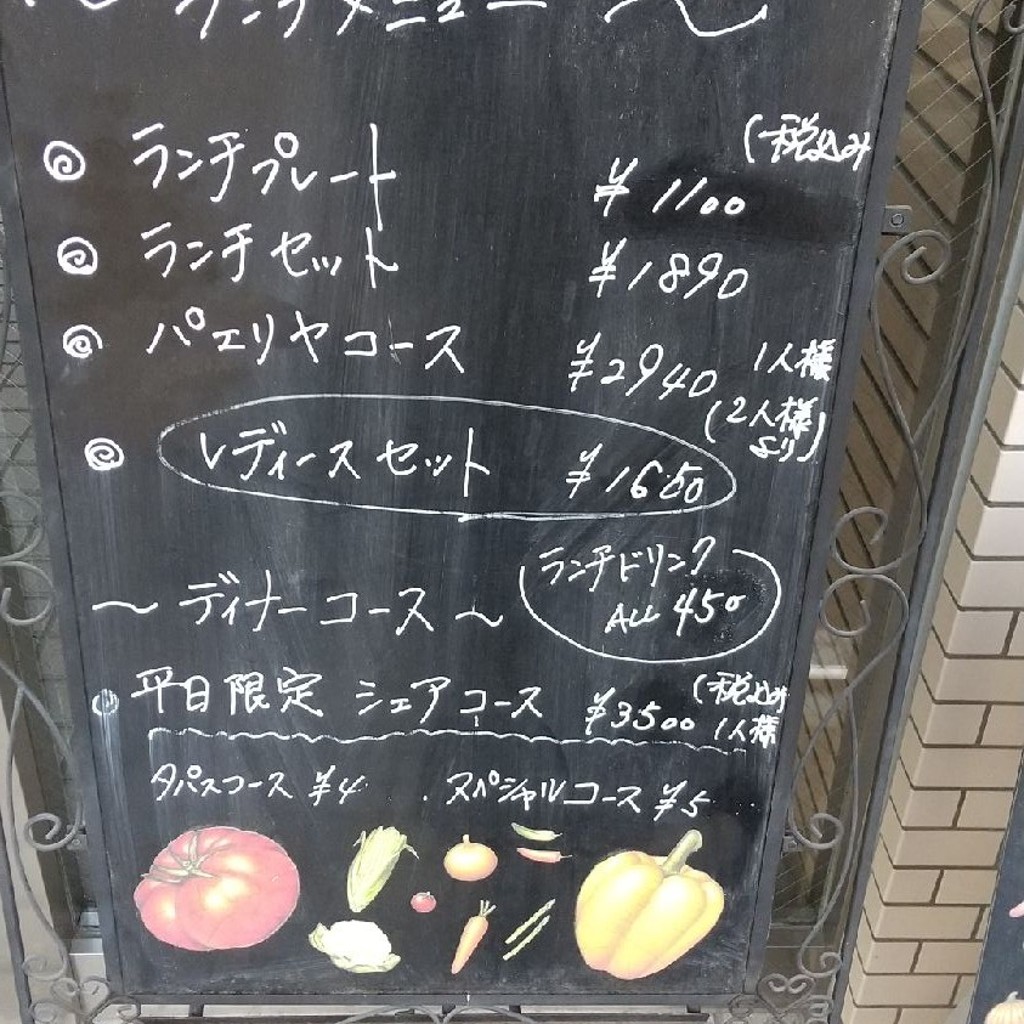 ランチメニュー
(税込み
ランチプレート ¥1100
ランチセット ¥1890
パエリヤコース ¥2940 1人様
(2人様より)
レディースセット ¥1650
ランチドリンク
ALL 450
〜ディナーコース〜
平日限定 シェアコース ¥3500 (税込み 1人様
タパスコース ¥4 スペシャルコース ¥5